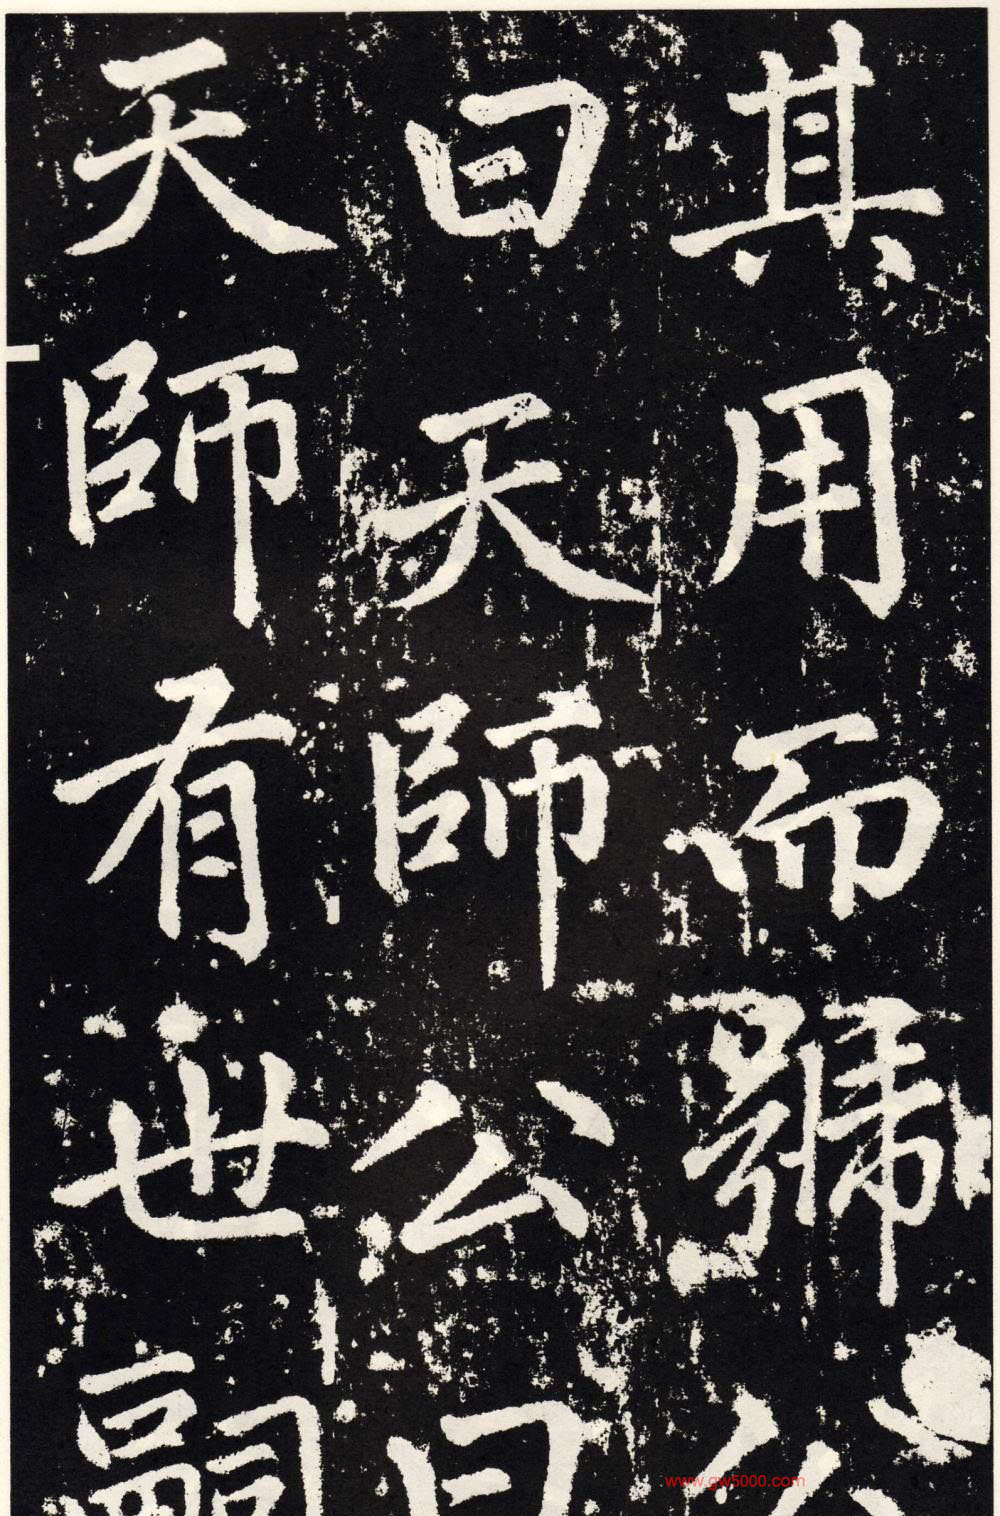 其用而號公
曰天師公曰
天師有世嗣
www.gw5000.com